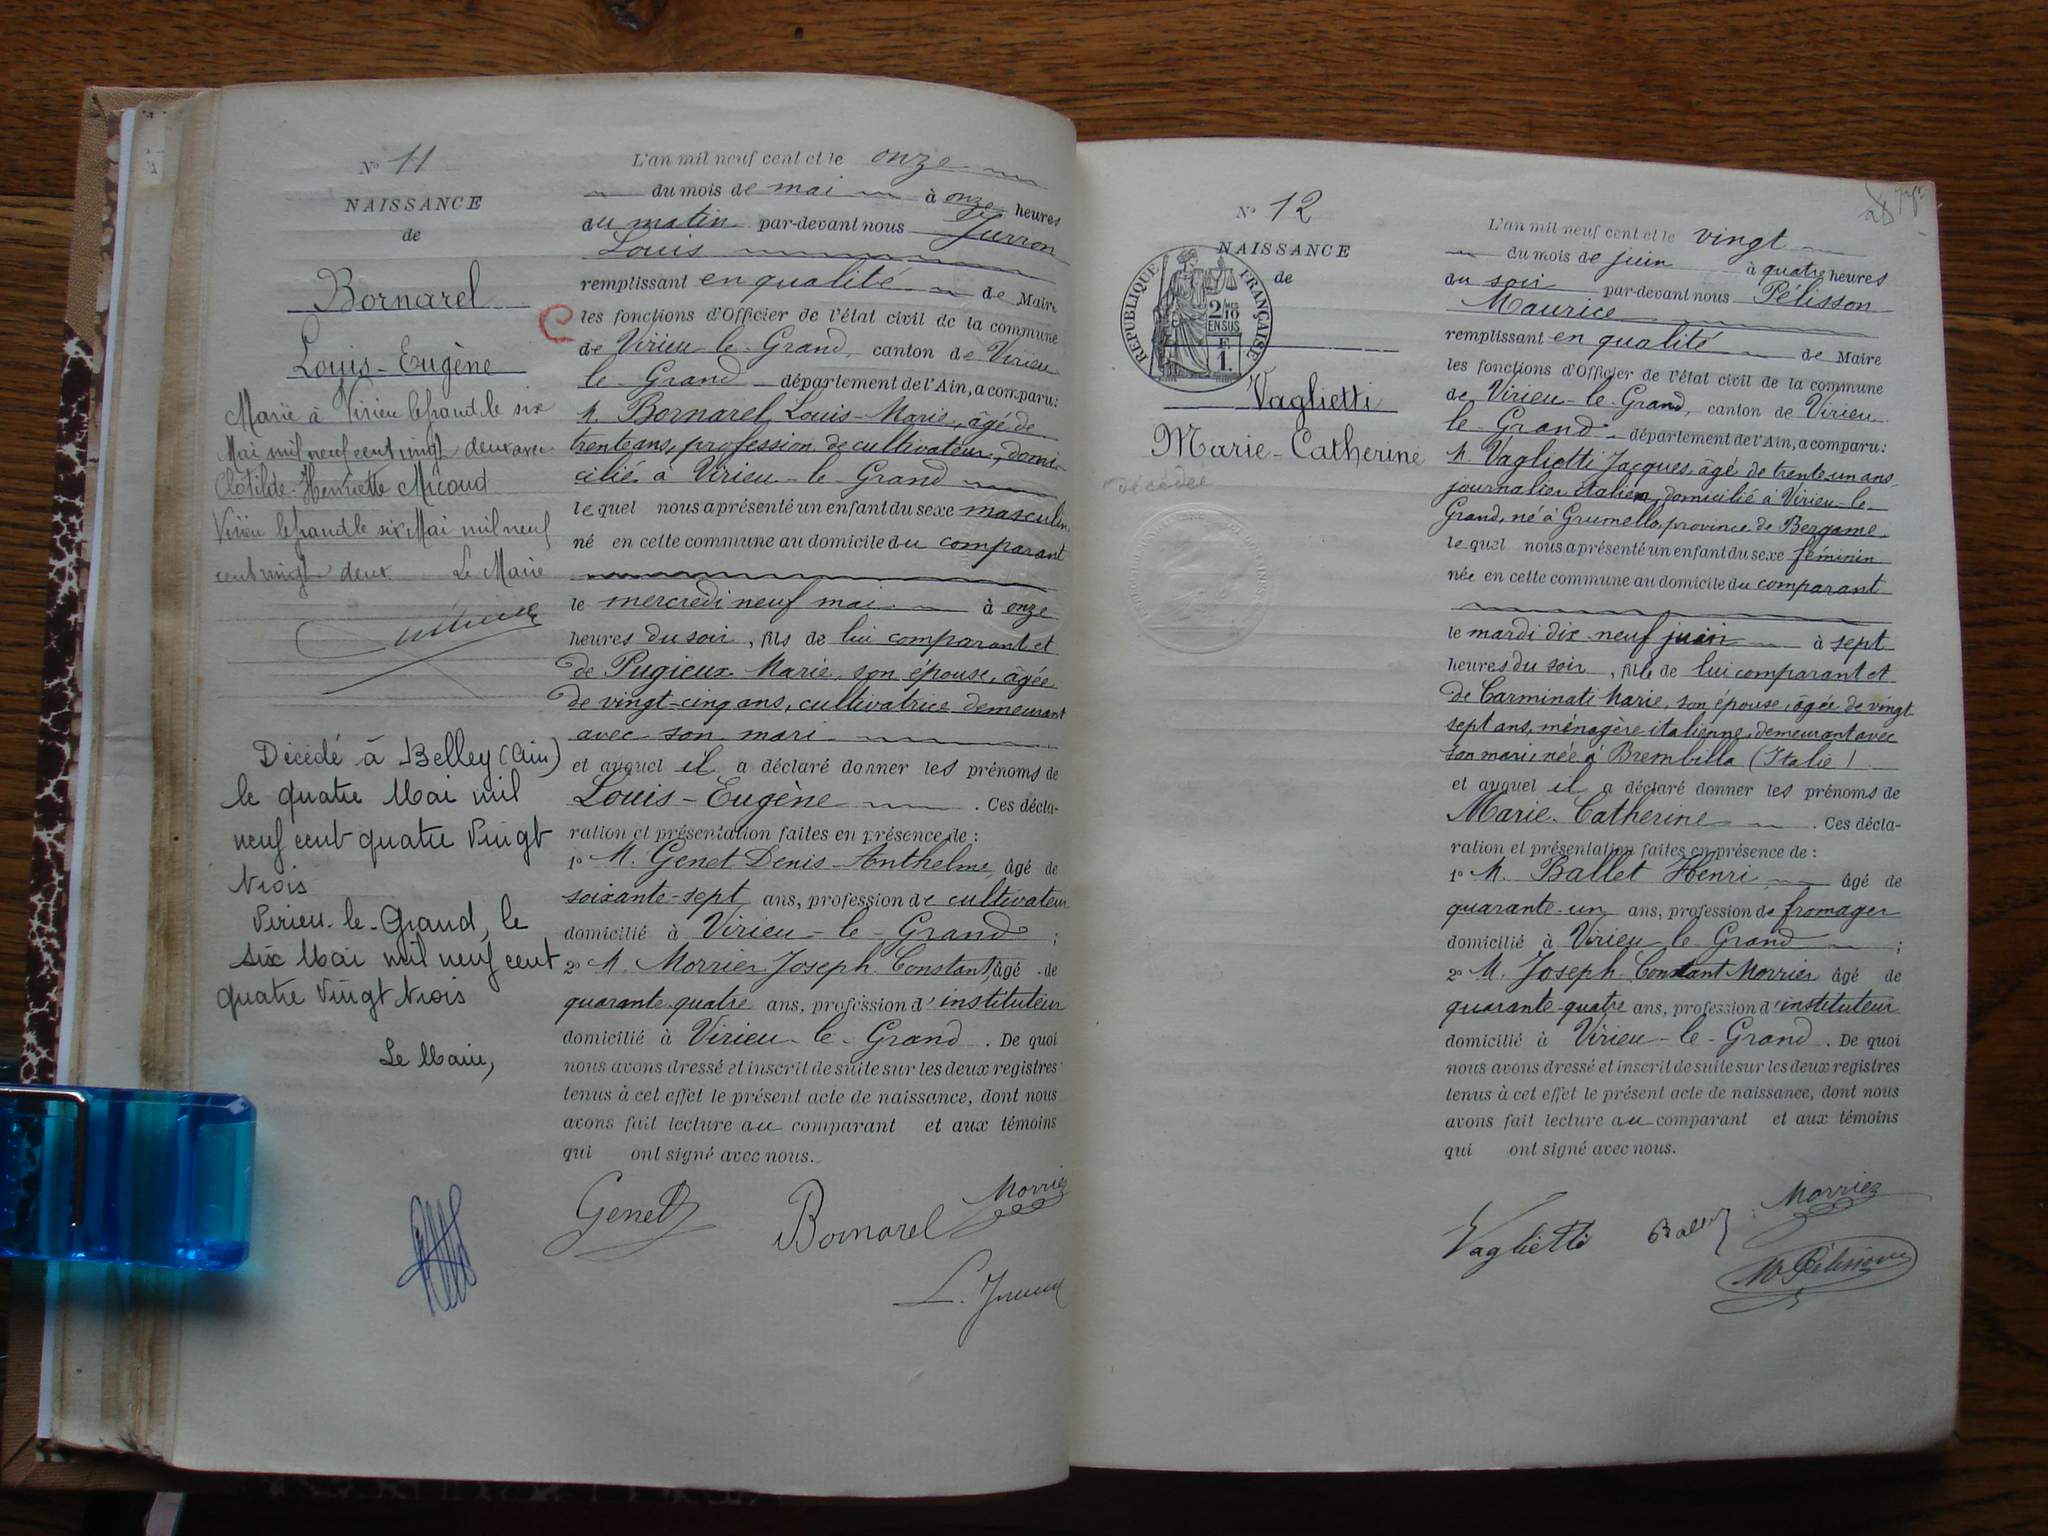 N° 11
NAISSANCE
de
Bornarel
Louis-Eugène
Marié à Virieu le grand le six
Mai mil neuf cent vingt deux avec
Clotilde-Henriette Micoud
Virieu le grand le six Mai mil neuf
cent vingt deux Le Maire
Décédé à Belley (Ain)
le quatre Mai mil
neuf cent quatre vingt
trois
Virieu-le-Grand, le
six Mai mil neuf cent
quatre vingt trois
Le Maire,
L'an mil neuf cent et le onze
du mois de mai à onze heures
du matin par-devant nous Jurron
Louis
remplissant en qualité de Maire
les fonctions d'Officier de l'état civil de la commune
de Virieu-le-Grand, canton de Virieu
le-Grand département de l'Ain, a comparu:
M. Bornarel Louis-Marie, âgé de
trente ans, profession de cultivateur, domi-
cilié à Virieu-le-Grand
lequel nous a présenté un enfant du sexe masculin
né en cette commune au domicile du comparant
le mercredi neuf mai à onze
heures du soir, fils de lui comparant et
de Pugieux Marie, son épouse, âgée
de vingt-cinq ans, cultivatrice demeurant
avec son mari
et auquel il a déclaré donner les prénoms de
Louis-Eugène . Ces décla-
ration et présentation faites en présence de :
1° M. Genet Denis-Anthelme, âgé de
soixante-sept ans, profession de cultivateur
domicilié à Virieu-le-Grand ;
2° M. Morrier Joseph-Constant, âgé de
quarante-quatre ans, profession d'instituteur
domicilié à Virieu-le-Grand . De quoi
nous avons dressé et inscrit de suite sur les deux registres
tenus à cet effet le présent acte de naissance, dont nous
avons fait lecture au comparant et aux témoins
qui ont signé avec nous.
Genet Bornarel Morrier
N° 12
NAISSANCE
de
RÉPUBLIQUE FRANÇAISE
2/10
EN SUS
F.
1.
Vaglietti
Marie-Catherine
Décédée
L'an mil neuf cent et le vingt
du mois de juin à quatre heures
du soir par-devant nous Pélisson
Maurice
remplissant en qualité de Maire
les fonctions d'Officier de l'état civil de la commune
de Virieu-le-Grand, canton de Virieu
le-Grand département de l'Ain, a comparu:
M. Vaglietti Jacques âgé de trente un ans
journalier italien, domicilié à Virieu-le-
Grand, né à Grumello, province de Bergame
lequel nous a présenté un enfant du sexe féminin
née en cette commune au domicile du comparant
le mardi dix-neuf juin à sept
heures du soir, fille de lui comparant et
de Carminati Marie, son épouse, âgée de vingt
sept ans, ménagère italienne, demeurant avec
son mari née à Brembilla (Italie)
et auquel il a déclaré donner les prénoms de
Marie-Catherine . Ces décla-
ration et présentation faites en présence de :
1° M. Ballet Henri, âgé de
quarante-un ans, profession de fromager
domicilié à Virieu-le-Grand ;
2° M. Joseph-Constant Morrier âgé de
quarante-quatre ans, profession d'instituteur
domicilié à Virieu-le-Grand . De quoi
nous avons dressé et inscrit de suite sur les deux registres
tenus à cet effet le présent acte de naissance, dont nous
avons fait lecture au comparant et aux témoins
qui ont signé avec nous.
Vaglietti Morrier